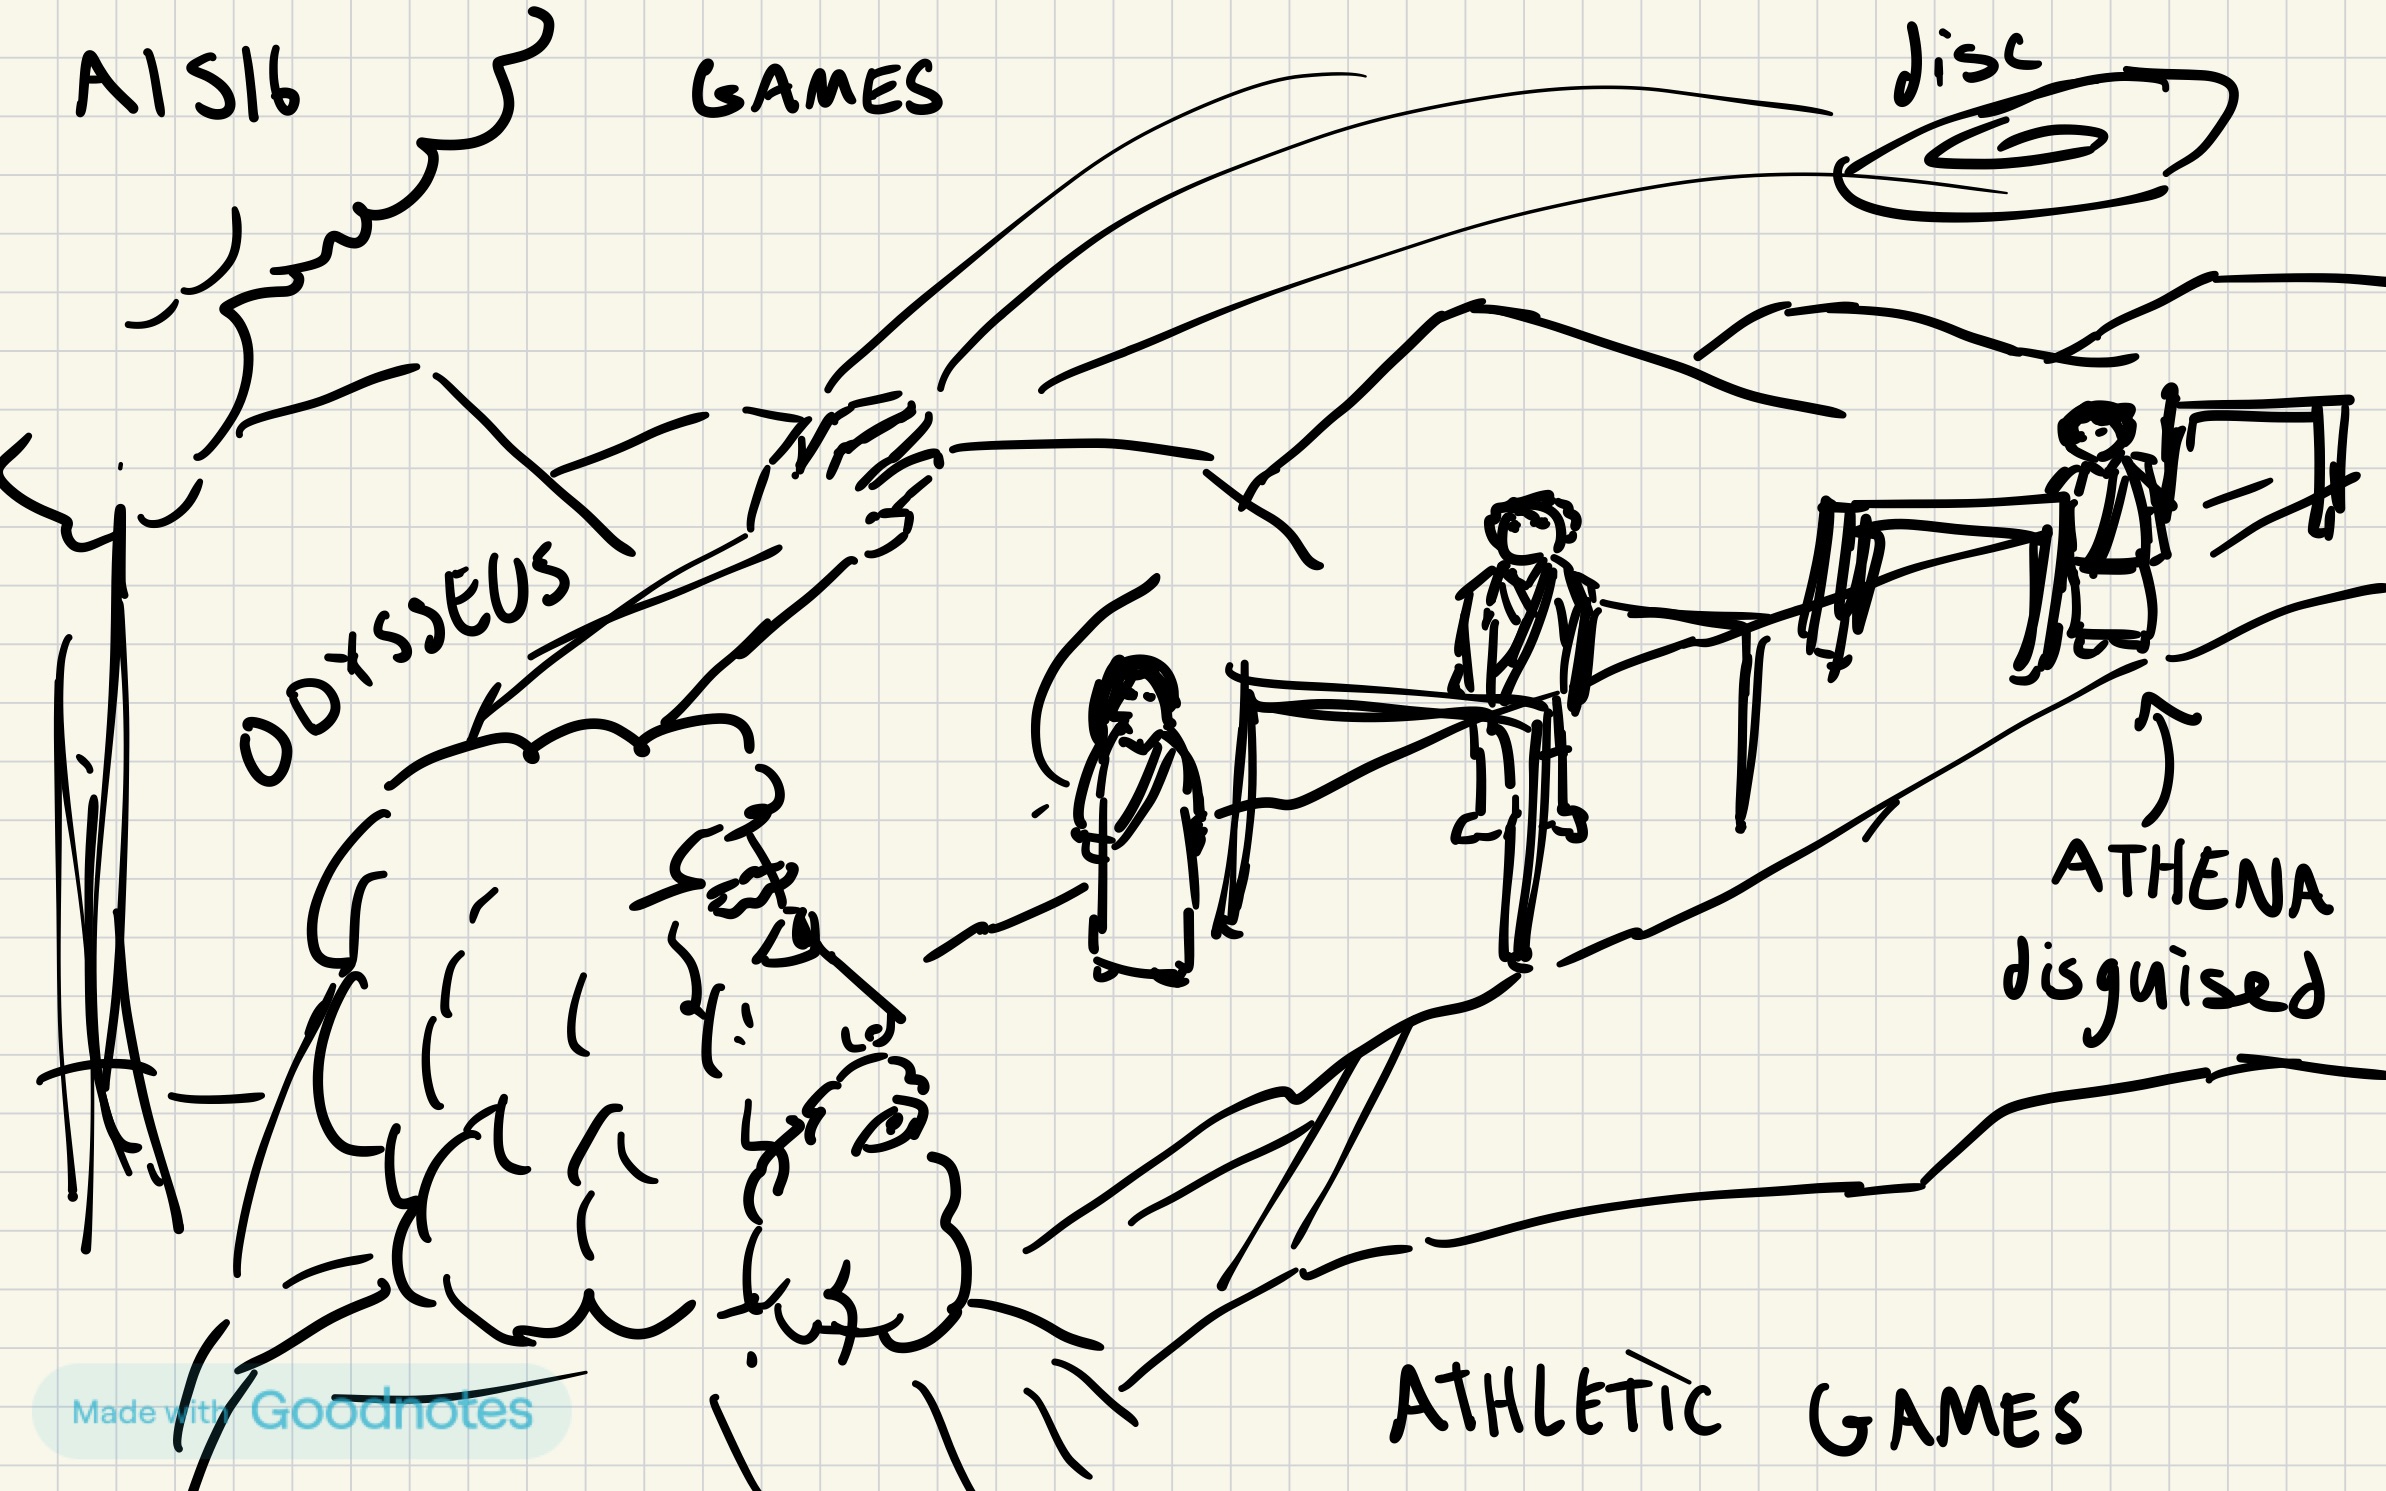 A1S16
GAMES
disc
ODYSSEUS
ATHENA
disguised
ATHLETIC GAMES
Made with Goodnotes